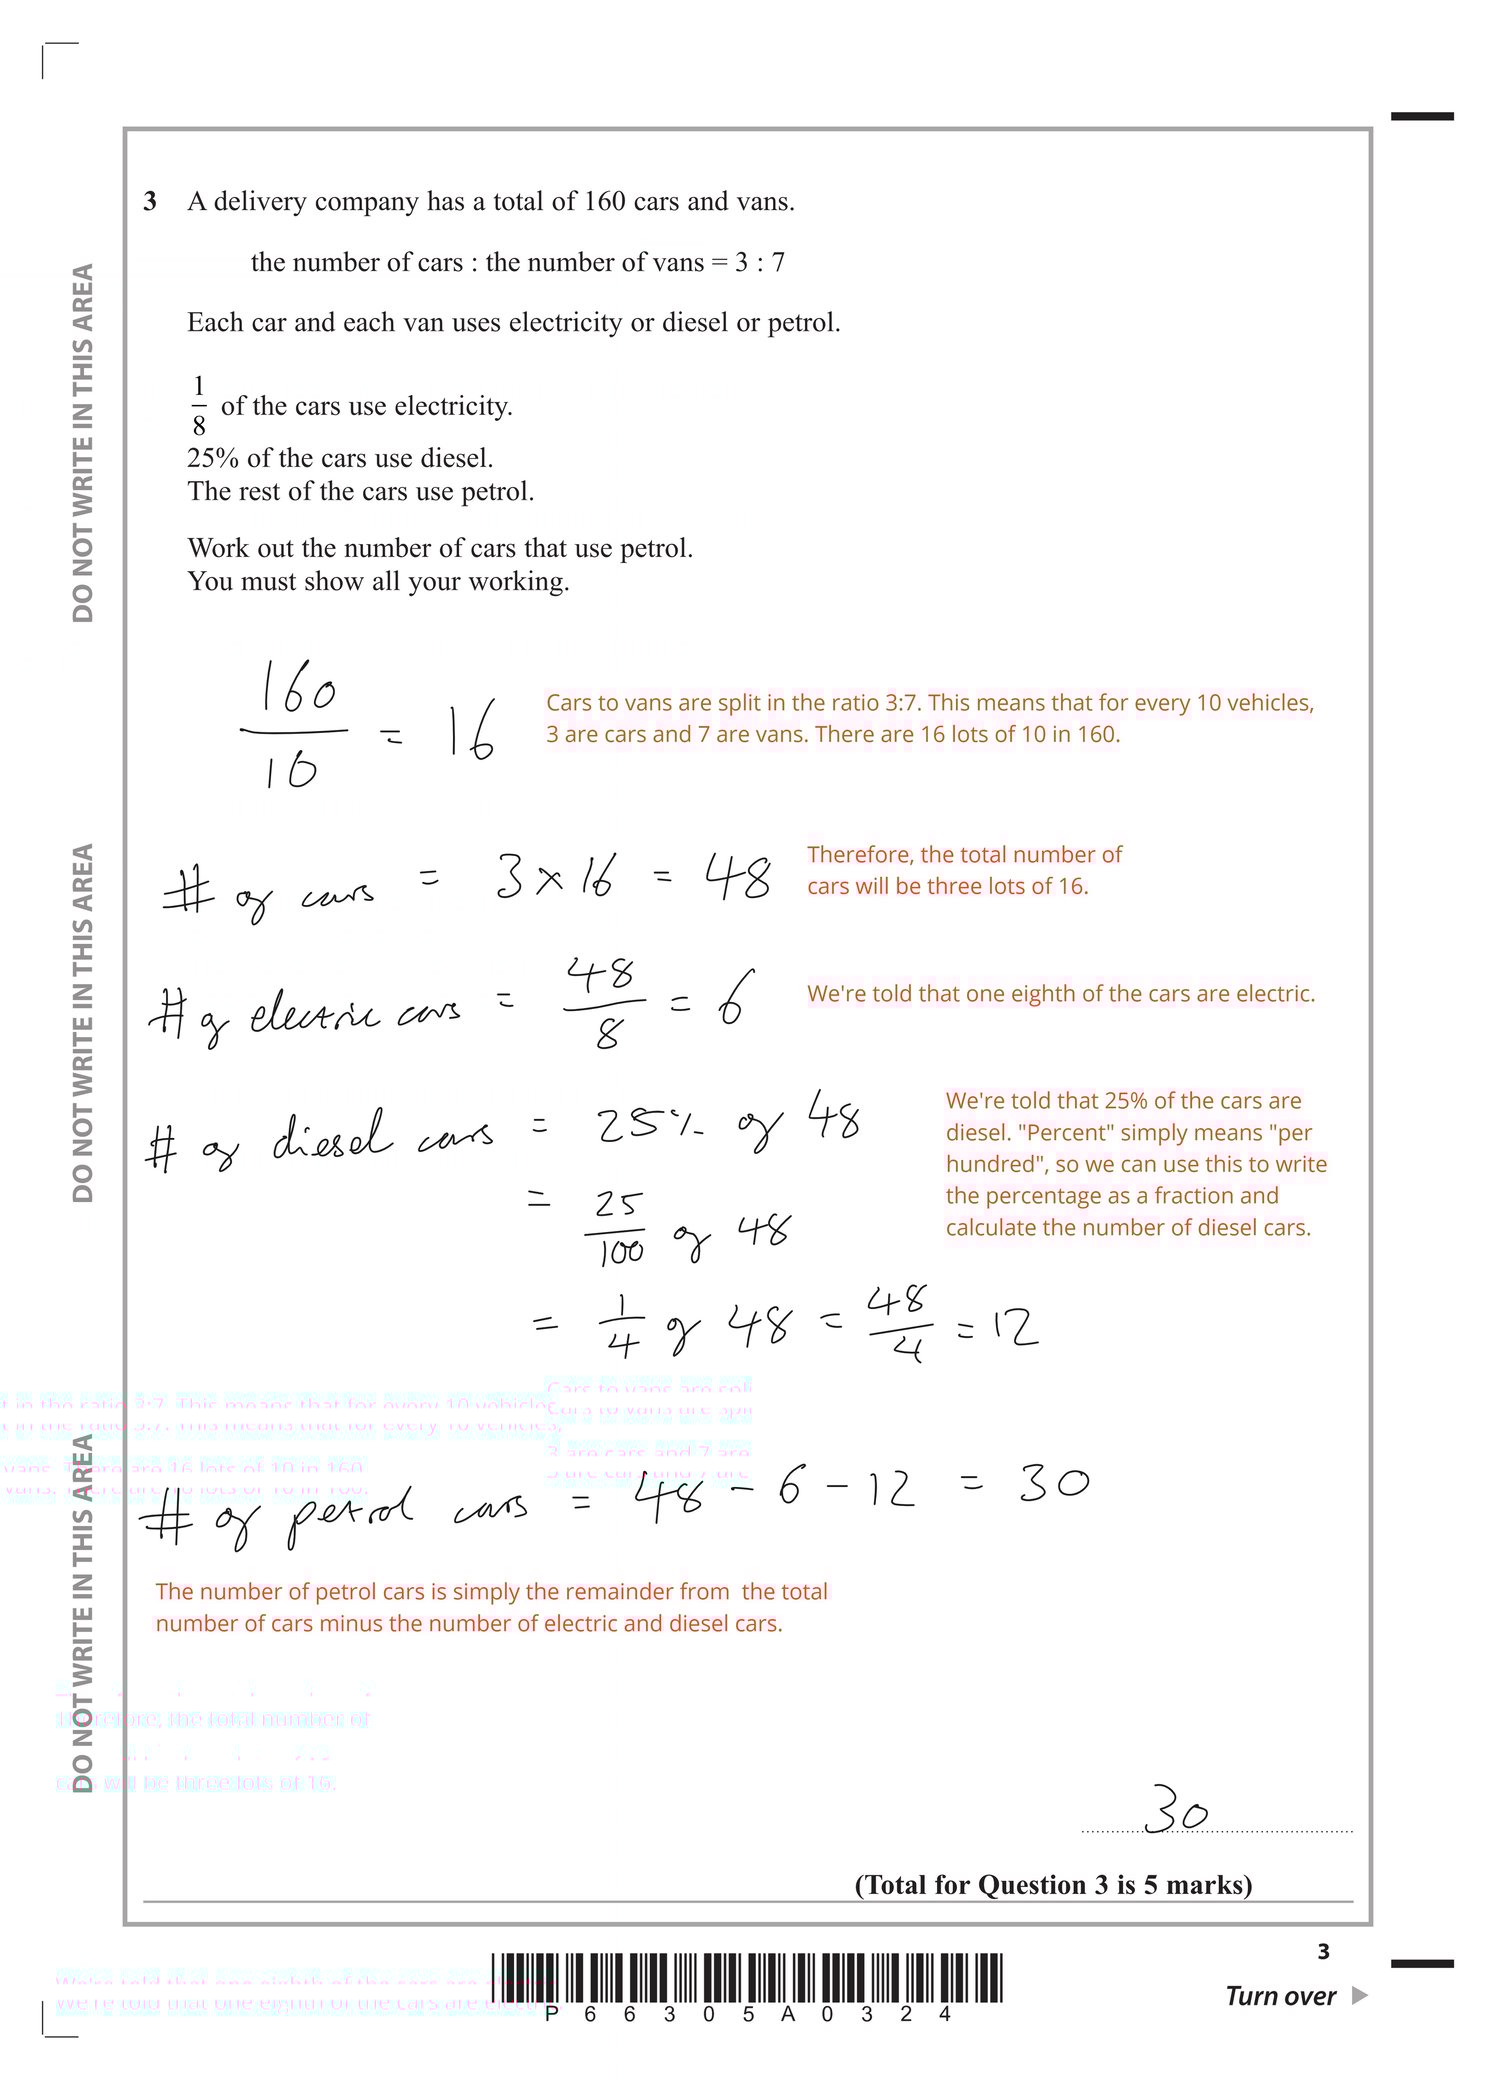 3 A delivery company has a total of 160 cars and vans.
the number of cars : the number of vans = 3 : 7
Each car and each van uses electricity or diesel or petrol.
1/8 of the cars use electricity.
25% of the cars use diesel.
The rest of the cars use petrol.
Work out the number of cars that use petrol.
You must show all your working.
160/10 = 16
Cars to vans are split in the ratio 3:7. This means that for every 10 vehicles,
3 are cars and 7 are vans. There are 16 lots of 10 in 160.
# of cars = 3 × 16 = 48
Therefore, the total number of
cars will be three lots of 16.
# of electric cars = 48/8 = 6
We're told that one eighth of the cars are electric.
# of diesel cars = 25% of 48
= 25/100 of 48
= 1/4 of 48 = 48/4 = 12
We're told that 25% of the cars are
diesel. "Percent" simply means "per
hundred", so we can use this to write
the percentage as a fraction and
calculate the number of diesel cars.
# of petrol cars = 48 - 6 - 12 = 30
The number of petrol cars is simply the remainder from the total
number of cars minus the number of electric and diesel cars.
30
(Total for Question 3 is 5 marks)
3
Turn over
P66305A0324
DO NOT WRITE IN THIS AREA
DO NOT WRITE IN THIS AREA
DO NOT WRITE IN THIS AREA